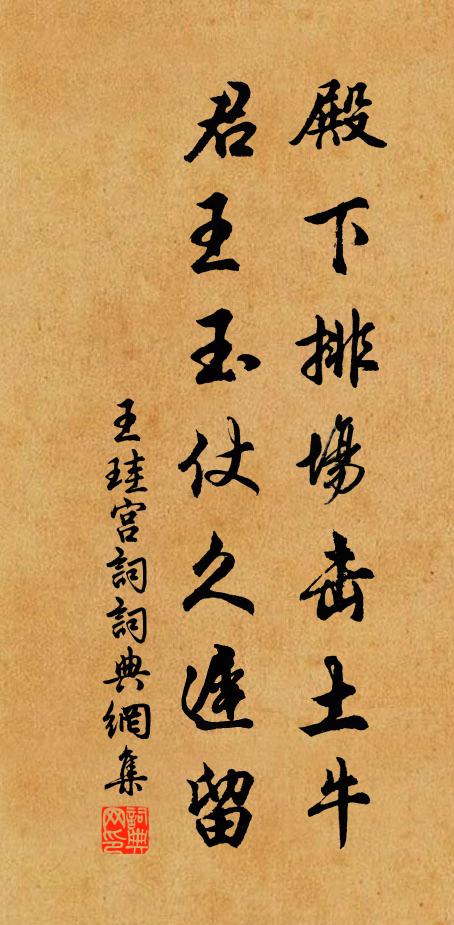 殿下排場击土牛
君王玉仗久遲留
王珪宫詞詞典網集
詞典网印